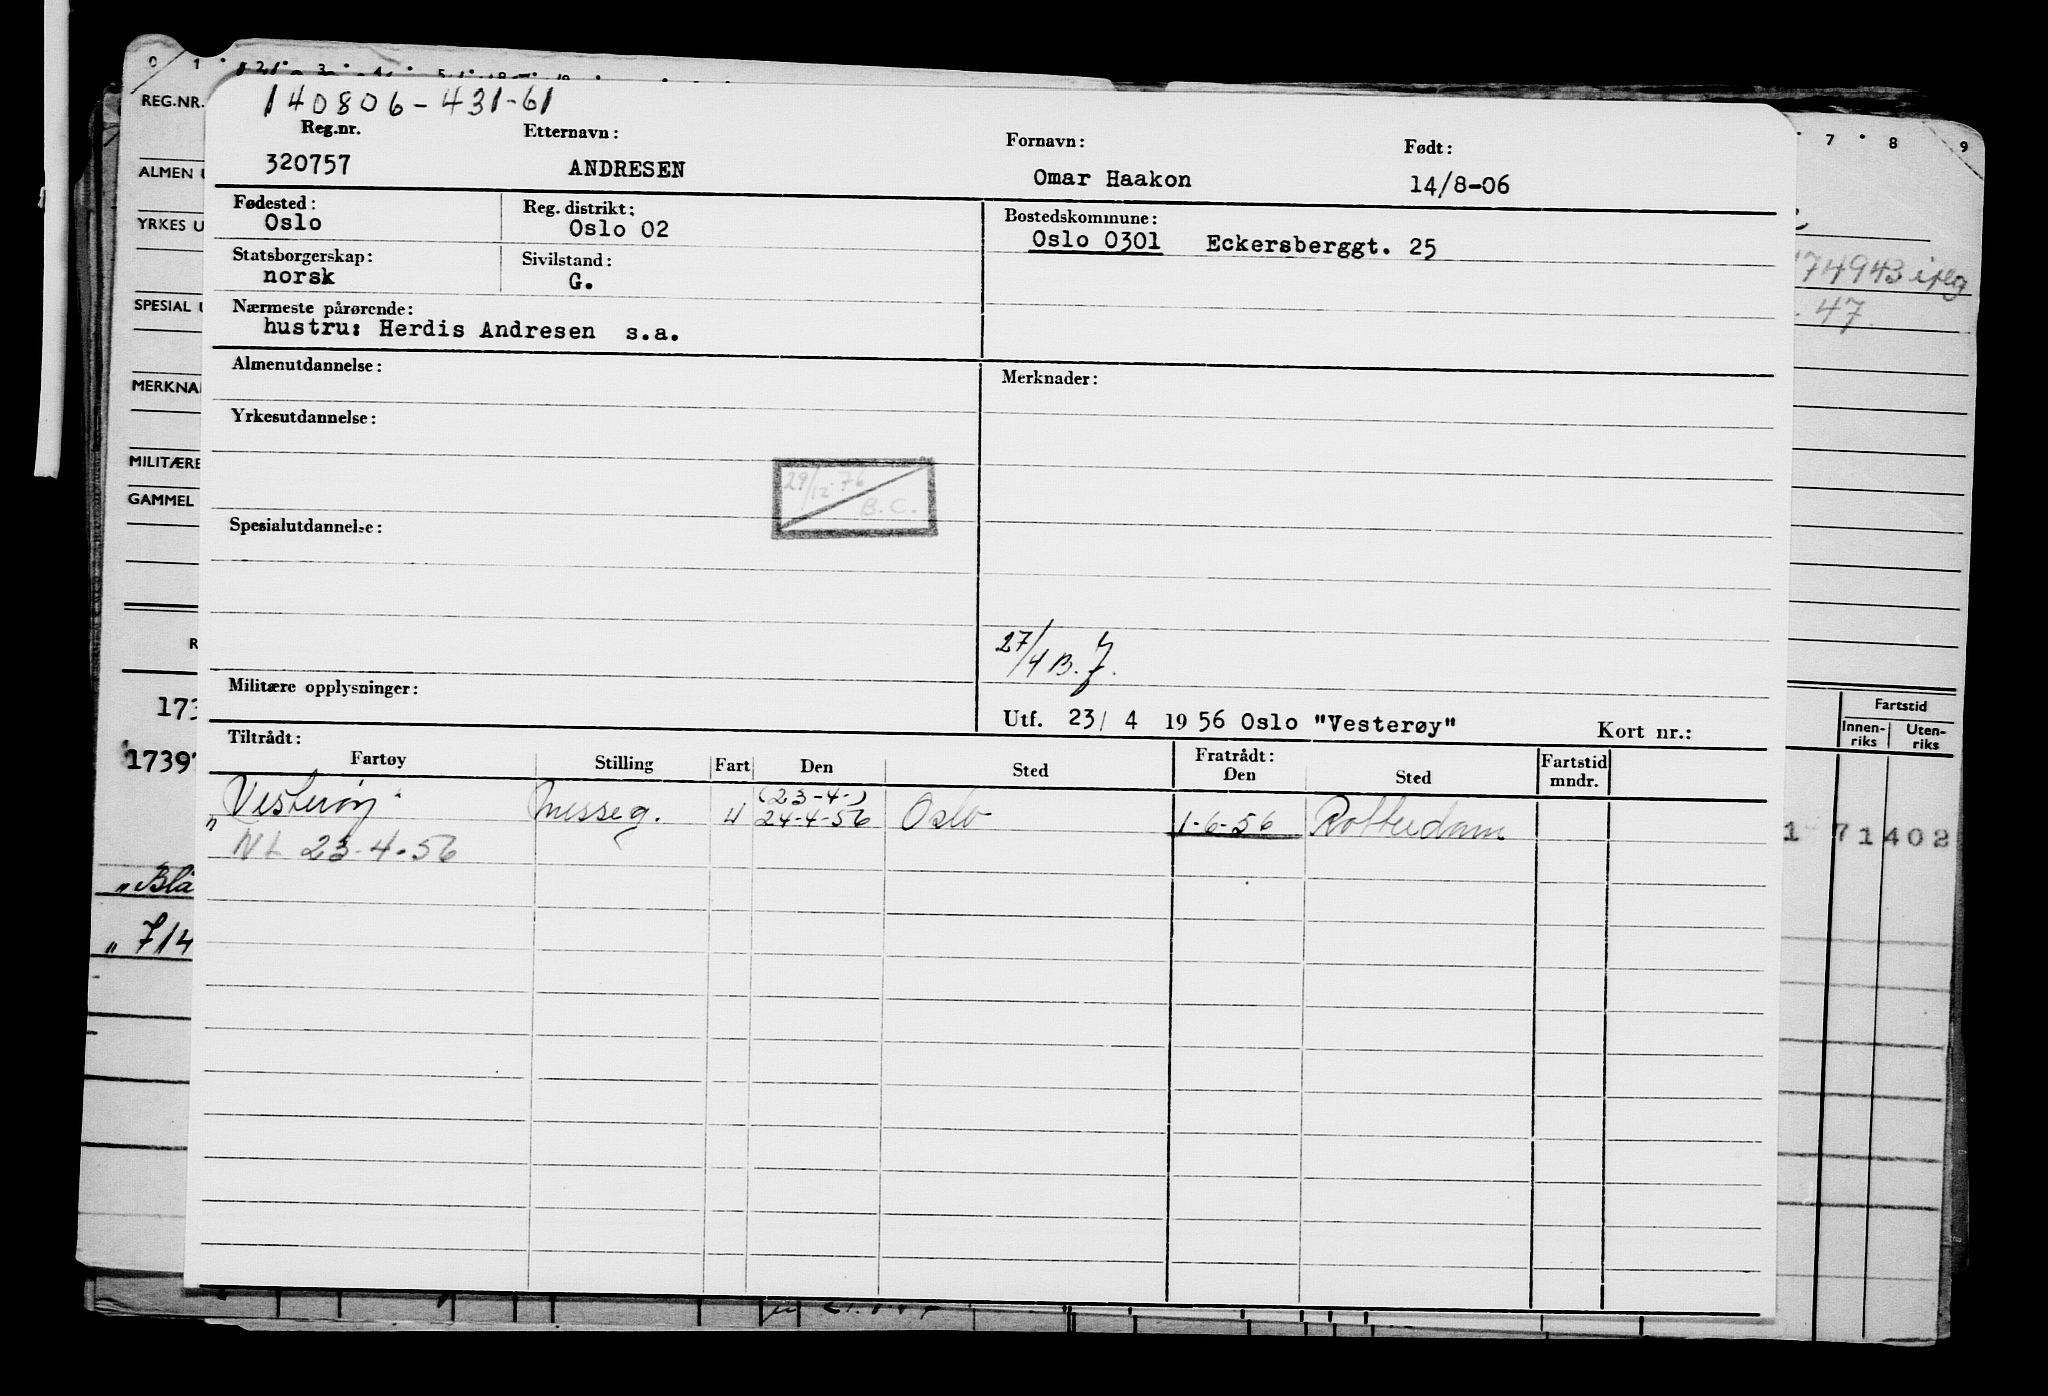 0 1 7 8 9
REG.NR.
140806-431-61
Reg.nr. Etternavn: Fornavn: Født:
320757 ANDRESEN Omar Haakon 14/8-06
ALMEN U
Fødested: Reg. distrikt: Bostedskommune:
Oslo Oslo 02 Oslo 0301 Eckersberggt. 25
YRKES U
Statsborgerskap: Sivilstand:
norsk G.
174943 i flg
SPESIAL U
Nærmeste pårørende:
47.
hustru: Herdis Andresen s.a.
MERKNA
Almenutdannelse: Merknader:
Yrkesutdannelse:
MILITÆRE
29/12-76
GAMMEL
B.C.
Spesialutdannelse:
27/4 B.J.
Militære opplysninger:
Utf. 23/ 4 1956 Oslo "Vesterøy" Kort nr.:
Fartstid
Innen-riks Uten-riks
Tiltrådt: Fratrådt:
Fartøy Stilling Fart Den Sted Den Sted Fartstid mndr.
173
1739
(23-4-)
"Vesterøy" messeg. U 24-4-56 Oslo 1-6-56 Rotterdam
NL 23-4-56
71402
"Bla
" 714